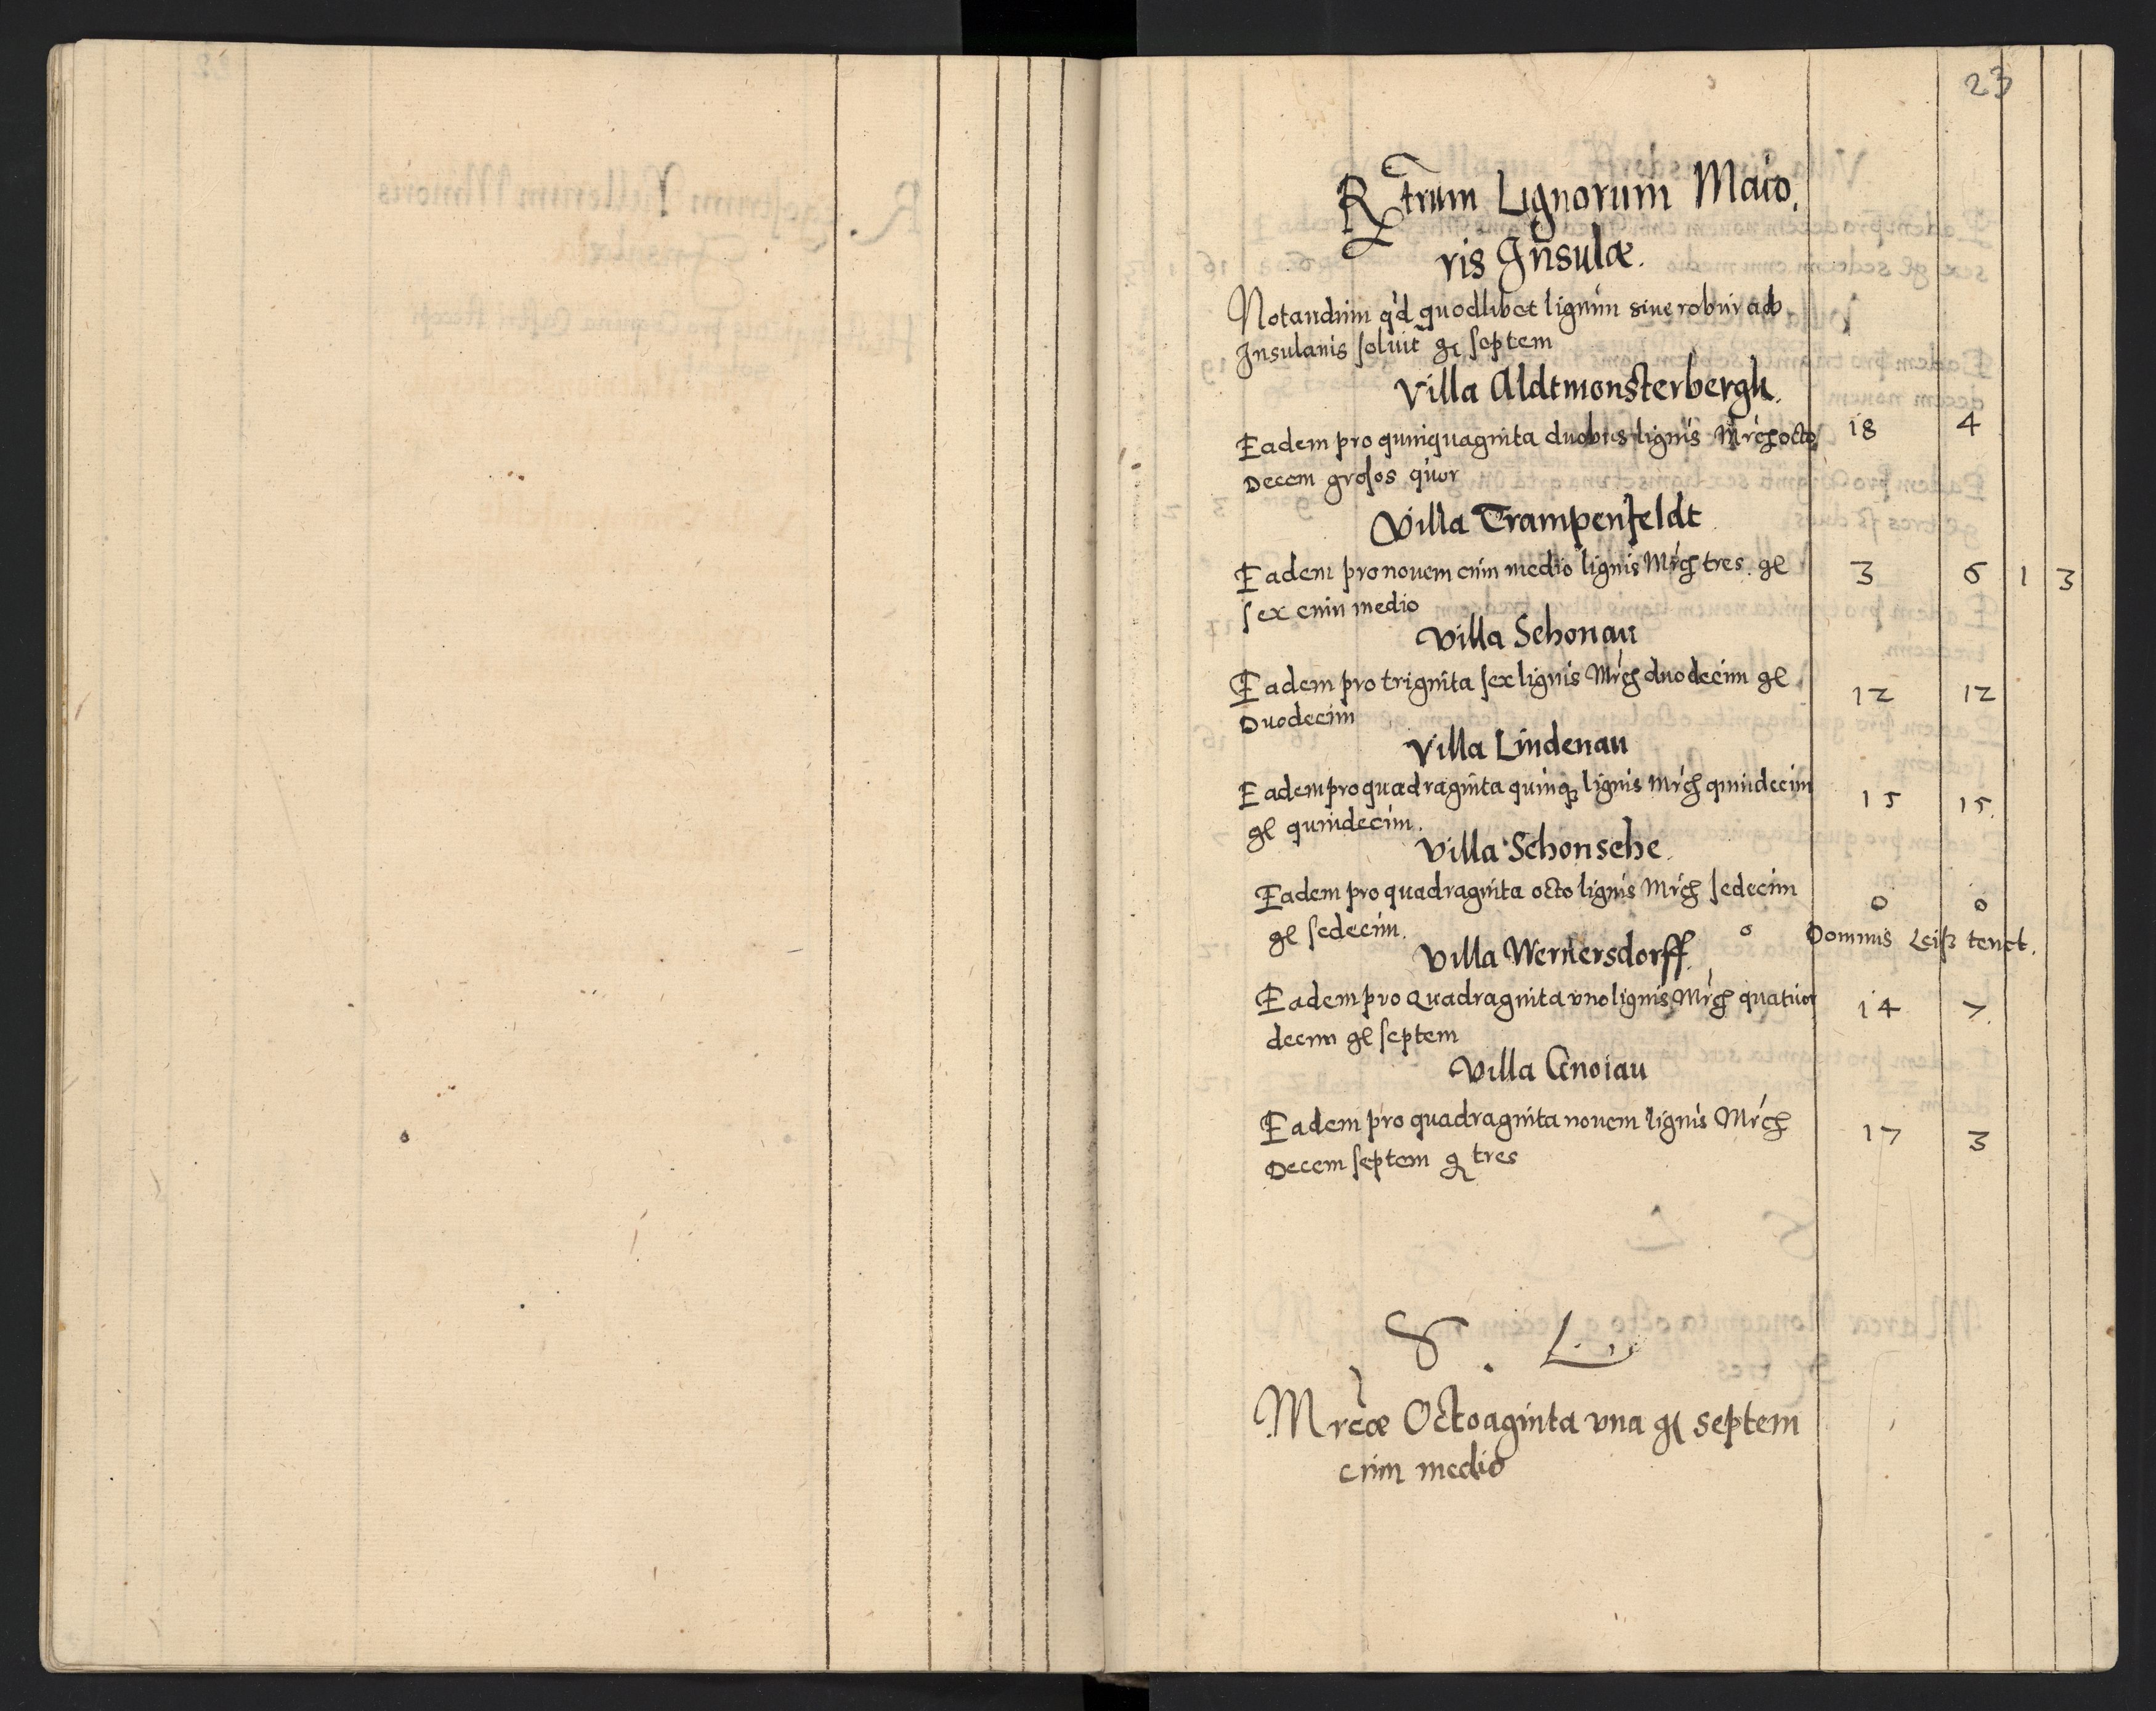 23
Rtrum Lignorum Maio,
ris Insulæ.
Notandum q'd quodlibet lignum siue robur ab
Insulanis soluit gr septem
Villa Aldtmonsterbergk.
Eadem pro quinquaginta duobus lignis Mrch octo 18 4
Decem grosos quor
Villa Trampenfeldt
Eadem pro nouem cum medio lignis Mrch tres. gl 3 6 1 3
sex cum medio
Villa Schonau
Eadem pro triginta sex lignis Mrch duodecim gl 12 12
Duodecim
Villa Lindenau
Eadem pro quadraginta quinq3 lignis Mrch quindecim 15 15.
gl quindecim.
Villa Schonsehe.
Eadem pro quadraginta octo lignis Mrch sedecim 0 0
gl sedecim. o Domnus Leiß tenet.
Villa Wernersdorff.
Eadem pro Quadraginta vno lignis Mrch quatuor 14 7.
decim gl septem
Villa Cnoiau
Eadem pro quadraginta nouem lignis Mrch 17 3
Decem septem gr tres
S . L.
Mrcæ Octoaginta vna gl septem
cum medio